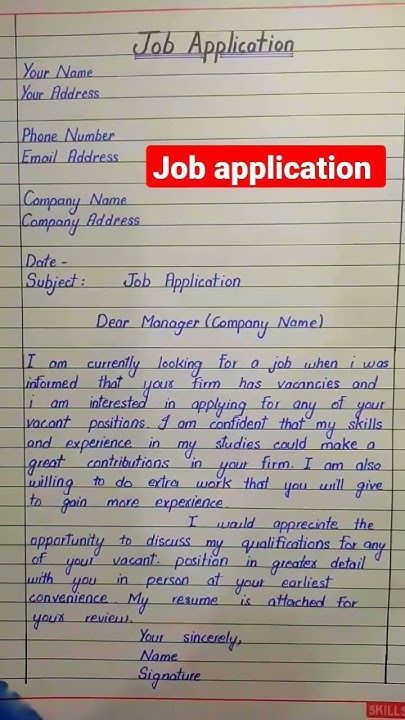 Job Application
Your Name
Your Address
Phone Number
Email Address
Job application
Company Name
Company Address
Date -
Subject: Job Application
Dear Manager (Company Name)
I am currently looking for a job when i was
informed that your firm has vacancies and
i am interested in applying for any of your
vacant positions. I am confident that my skills
and experience in my studies could make a
great contributions in your firm. I am also
willing to do extra work that you will give
to gain more experience.
I would appreciate the
opportunity to discuss my qualifications for any
of your vacant. position in greater detail
with you in person at your earliest
convenience. My resume is attached for
your review.
Your sincerely,
Name
Signature
SKILLS